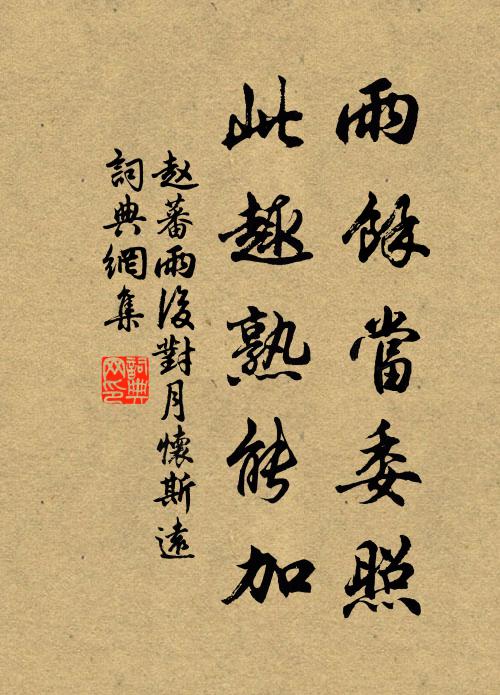 雨餘當委照
此趣熟能加
赵蕃雨後對月懷斯遠
詞典網集
詞典网印